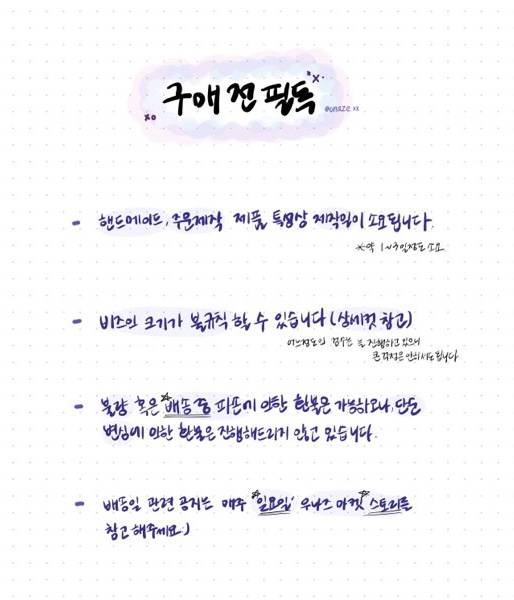 구매 전 필독
@unaze.xx
- 핸드메이드, 주문제작 제품 특성상 제작일이 소요됩니다.
*약 1~3일정도 소요
- 비즈의 크기가 불규칙 할 수 있습니다 (상세컷 참고)
어느정도의 검수는 진행하고 있으니
큰 걱정은 안하셔도 됩니다
- 불량 혹은 배송 중 파손에 의한 환불은 가능하오나, 단순
변심에 의한 환불은 진행해드리지 않고 있습니다.
- 배송일 관련 공지는 매주 '일요일' 우나즈 마켓 스토리를
참고 해주세요 :)